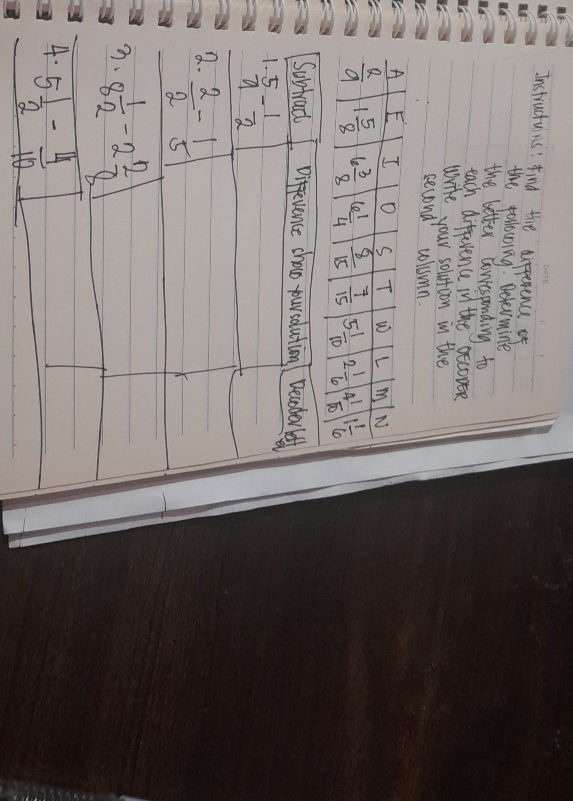 Instructions: find the difference of
the following. Determine
the letter corresponding to
each difference in the DECODER
Write your solution in the
second column.
A E I O S T W L M N
2/9 1 5/8 6 3/8 6 1/4 8/15 7/15 5 1/10 2 1/6 4 1/10 1 1/6
Subtract Difference show your solution Decoder
1. 5/9 - 1/2
2. 2/2 - 1/5
3. 8 1/2 - 2 2/8
4. 5 1/2 - 4/10